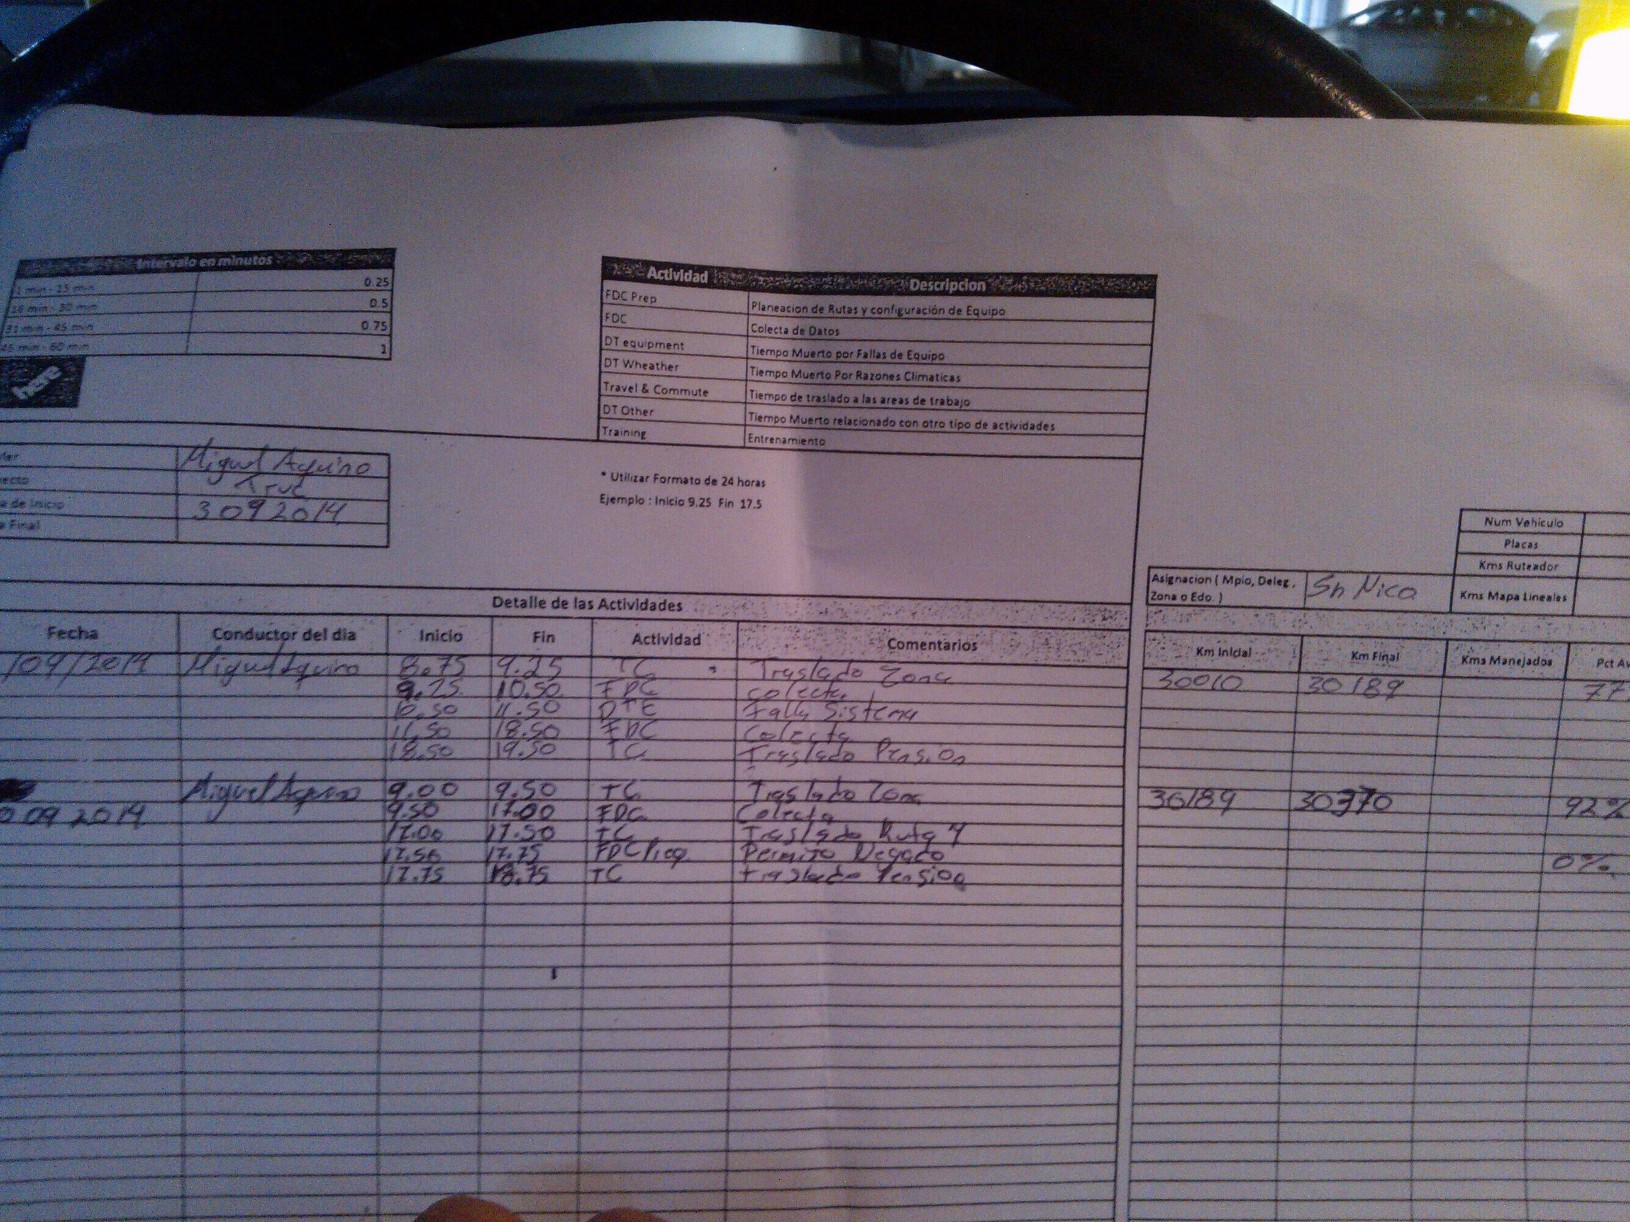 Intervalo en minutos
1 min - 15 min 0.25
16 min - 30 min 0.5
31 min - 45 min 0.75
46 min - 60 min 1
here
Actividad Descripcion
FDC Prep Planeacion de Rutas y configuración de Equipo
FDC Colecta de Datos
DT equipment Tiempo Muerto por Fallas de Equipo
DT Wheather Tiempo Muerto Por Razones Climaticas
Travel & Commute Tiempo de traslado a las areas de trabajo
DT Other Tiempo Muerto relacionado con otro tipo de actividades
Training Entrenamiento
Miguel Aquino
ecto True
a de Inicio 3 09 2014
a Final
* Utilizar Formato de 24 horas
Ejemplo : Inicio 9.25 Fin 17.5
Num Vehiculo
Placas
Kms Ruteador
Kms Mapa Lineales
Asignacion ( Mpio, Deleg. Sn Nico
Zona o Edo. )
Detalle de las Actividades
Fecha Conductor del dia Inicio Fin Actividad Comentarios Km Inicial Km Final Kms Manejados Pct Av
/09/2014 Miguel Aquino 8.75 9.25 TC Traslado Zona 30010 30189 77
9.25 10.50 FDC Colecta
10.50 11.50 DTE Falla Sistema
11.50 18.50 FDC Colecta
18.50 19.50 TC Traslado Pension
Miguel Aquino 9.00 9.50 TC Traslado Zona 30189 30370 92%
09 2014 9.50 17.00 FDC Colecta
17.00 17.50 TC Traslado Ruta 4
17.50 17.75 FDC Prep Permito Negado 0%
17.75 18.75 TC traslado Pension